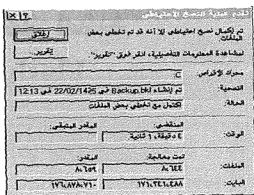 تقدم عملية النسخ الاحتياطي
تم إكمال نسخ احتياطي إلا أنه قد تم تخطي بعض الملفات
إغلاق
لمشاهدة المعلومات التفصيلية، انقر فوق "تقرير".
تقرير...
محرك الأقراص: C:
التسمية: تم إنشاء Backup.bkf في 22/02/1425 في 13:12
الحالة: اكتمل مع تخطي بعض الملفات
المنقضي: المقدر المتبقي:
الوقت: ٤ دقيقة، ١ ثانية
تمت معالجة: المقدر:
الملفات: ٨،٦٤٤ ٨،٦٥٩
البايت: ١٧٦،٢٤٦،٤٨٨ ١٧٦،٨٧٨،٧١٠